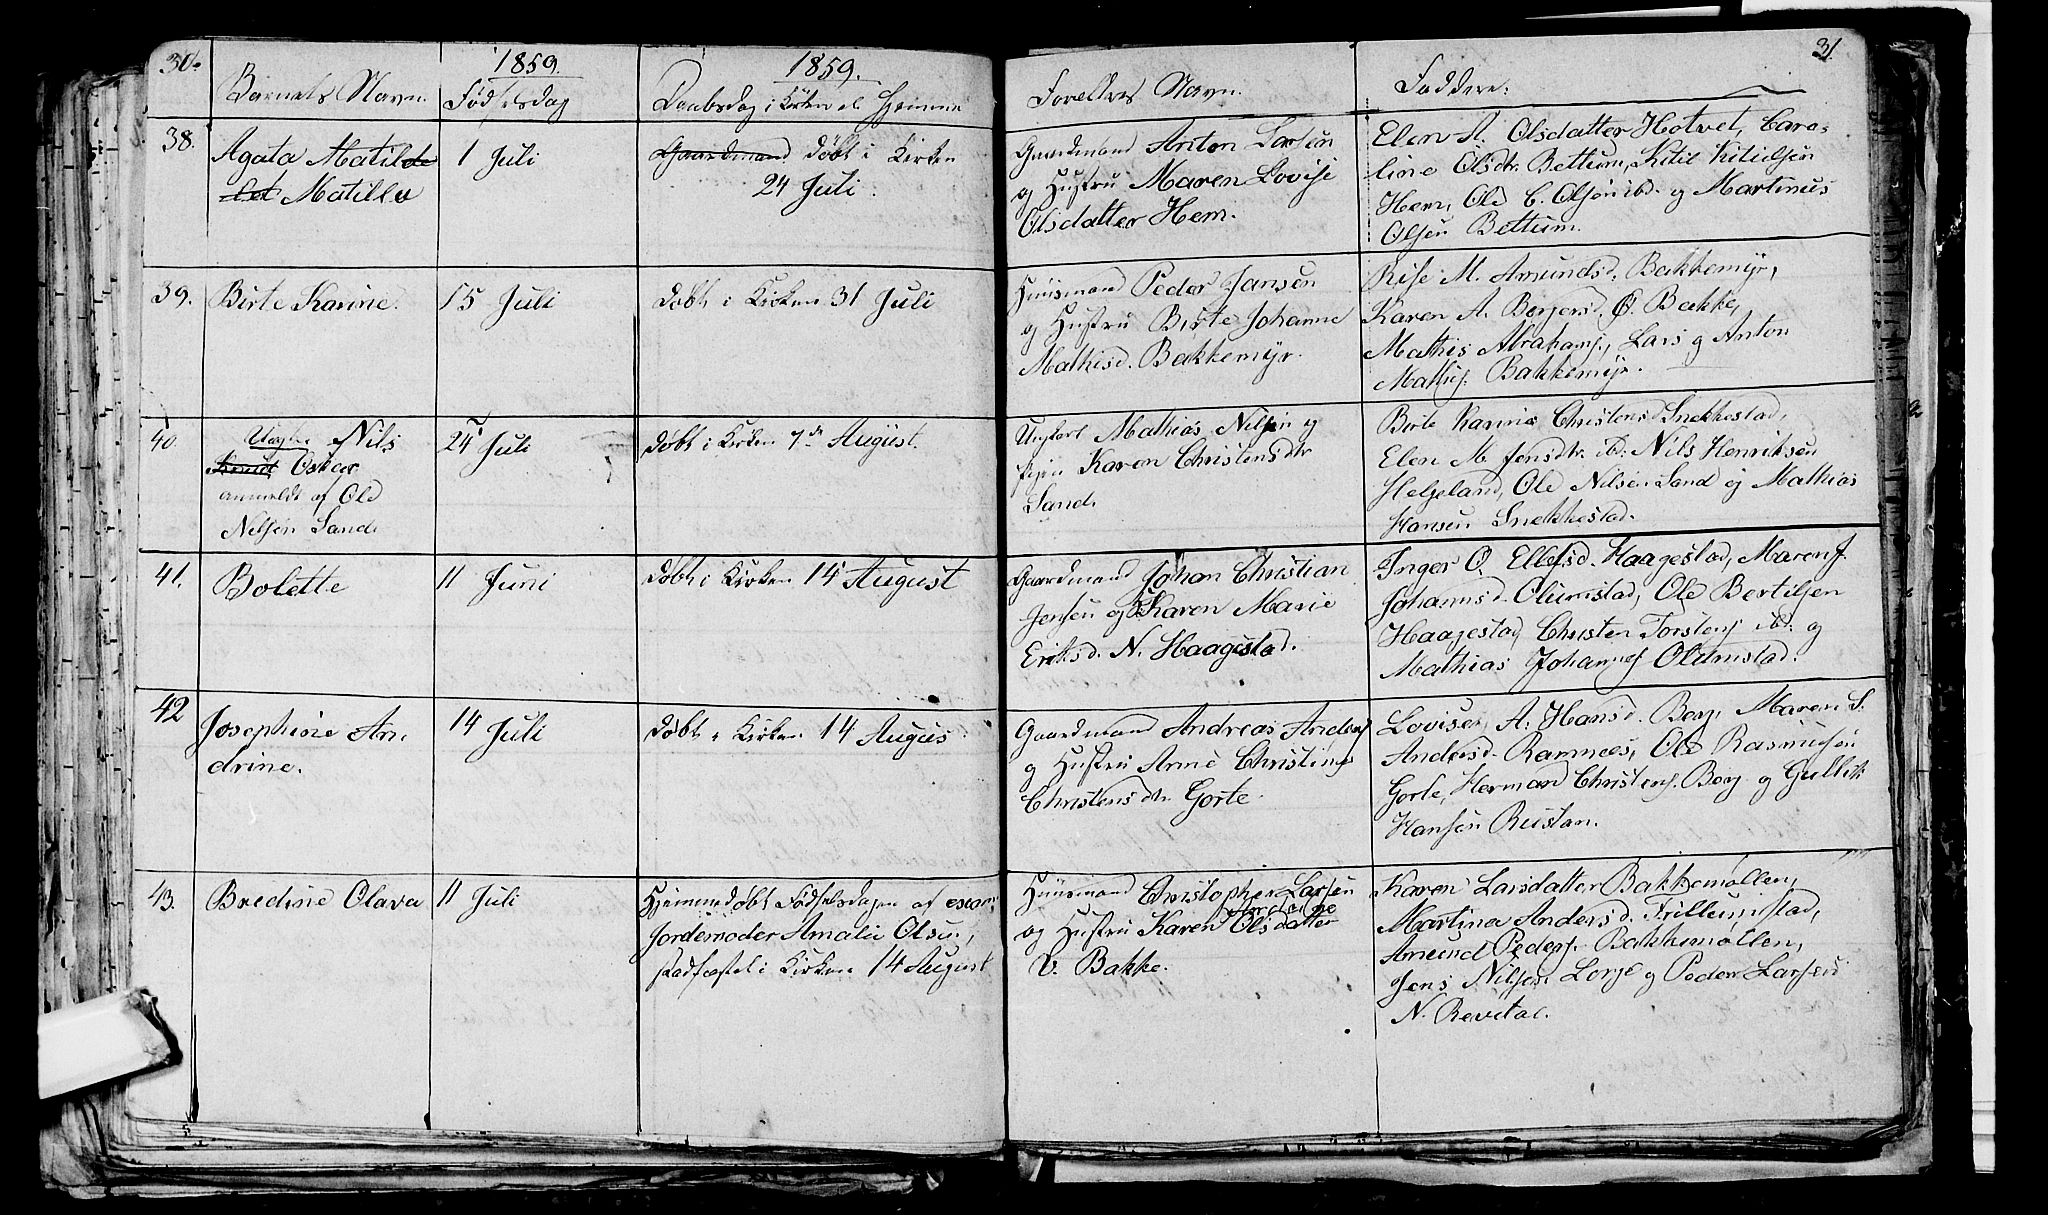 30.
1859.
1859.
Barnets Navn.
Fødselsdag
Daabsdag i Kirken el Hjemme
38.
Agata Matilde
Matilde
1 Juli
Gaardmand Døbt i Kirken
24 Juli.
39.
Birte Karine.
15 Juli
Døbt i Kirken 31 Juli
40.
Uægte Nils
Knud Oskar
anmeldt af Ole
Nilsen Sand.
24 Juli
Døbt i Kirken 7de August.
41.
Bolette
11 Juni
Døbt i Kirken 14 August
42
Josephine An,
drine.
14 Juli
Døbt i Kirken 14 Augus
43.
Bredine Olava
11 Juli
Hjemmedøbt Fødselsdagen af exam,
Jordemoder Amalie Olsen,
stadfæstet i Kirken 14 August
31.
Forældres Navn.
Faddere:
Gaardmand Anton Larsen
og Hustru Maren Lovise
Olsdatter Hem.
Elen A. Olsdatter Hotvet, Caro,
line Olsdr. Bettum, Kitil Kitilsen
Hem, Ole C. Olsen ibd. og Martinus
Olsen Bettum.
Huusmand Peder Jansen
og Hustru Birte Johanne
Mathisd. Bakkemyr.
M. Amundsd. Bakkemyr,
Karen A. Borgersd. Ø. Bakke,
Mathis Abrahams., Lars og Anton
Mathis. Bakkemyr.
Ungkarl Mathias Nilsen og
Pigen Karen Christensdtr
Sand.
Birte Karine Christensd. Snekkestad,
Elen M. Jensdtr. ibd. Nils Henriksen
Helgeland, Ole Nilsen Sand og Mathias
Hansen Snekkestad.
Gaardmand Johan Christian
Jensen og Karen Marie
Eriksd. N. Haagestad.
Inger O. Ellefsd. Haagestad, Maren J.
Johannsd. Olumstad, Ole Bertilsen
Haagestad, Christen Torstens. ibd. og
Mathias Johannes. Olumstad.
Gaardmand Andreas Anders.
og Hustru Anne Christine
Christensdtr. Gorte.
Lovise A. Hansd. Berg, Maren S.
Andersd. Ramnes, Ole Rasmusen
Gorte, Herman Christens. Berg og Gullik
Hansen Rustan.
Huusmand Christopher Larsen
og Hustru Karen Olsdatter
V. Bakke.
Karen Larsdatter Bakkemøllen,
Martina Andersd. Trillumstad,
Amund Peders. Bakkemøllen,
Jens Nilsen Lorge og Peder Larsen
N. Revetal.